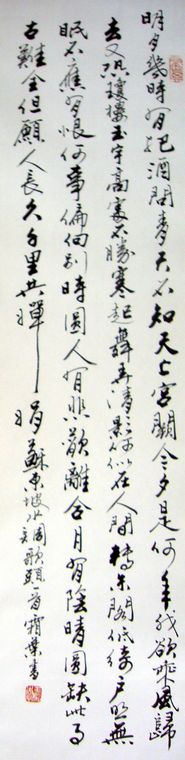 明月幾時有把酒問青天不知天上宮闕今夕是何年我欲乘風歸
去又恐瓊樓玉宇高處不勝寒起舞弄清影何似在人間轉朱閣低綺戶照無
眠不應有恨何事偏向別時圓人有悲歡離合月有陰晴圓缺此事
古難全但願人長久千里共嬋娟 蘇東坡水調歌頭一首 霜葉書